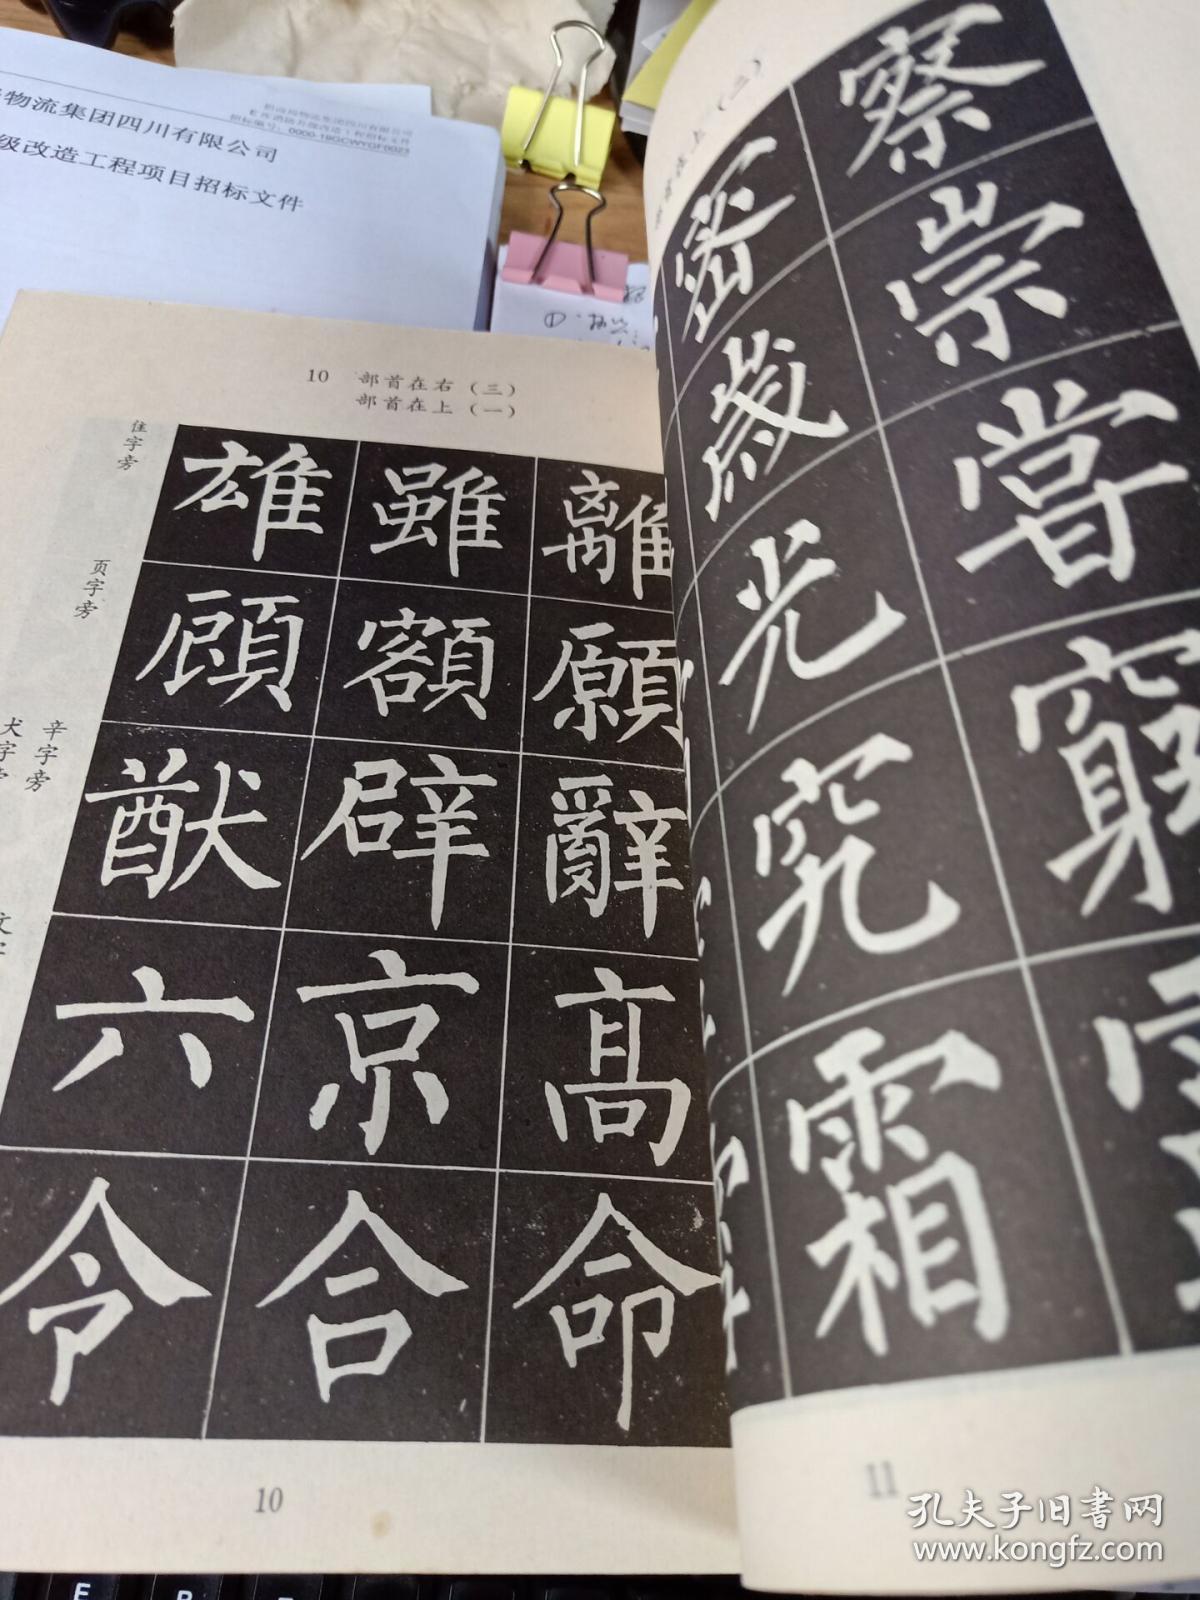 物流集团四川有限公司
级改造工程项目招标文件
招标编号：0000-18GCWYGF0023
10 部首在右（三）
部首在上（一）
隹字旁
页字旁
辛字旁
犬字旁
雄 雖 離
顧 額 願
猷 辟 辭
六 京 高
令 合 命
10
察
密 崇
歲 嘗
光 窮
究
霜
11
孔夫子旧书网
www.kongfz.com